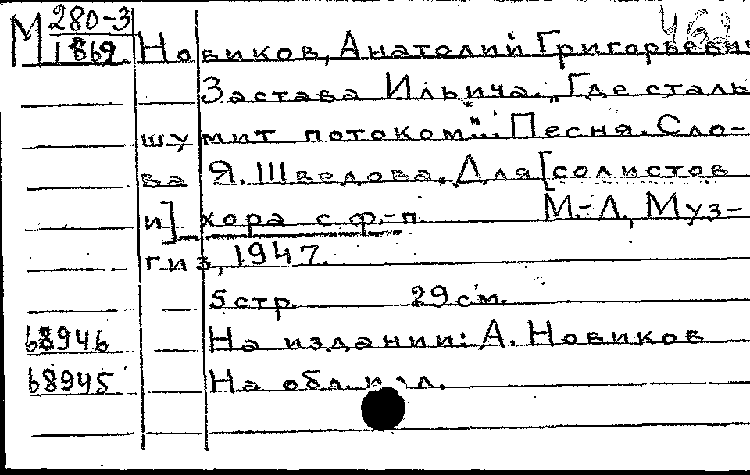 М 280-3
1869.
462
Новиков, Анатолий Григорьевич
Застава Ильича. „Где сталь
шумит потоком“... Песня. Сло-
ва Я. Шведова. Для [солистов
и] хора с ф.-п. М.-Л., Муз-
гиз, 1947.
5 стр. 29 см.
68946 На издании: А. Новиков
68945 На обл.